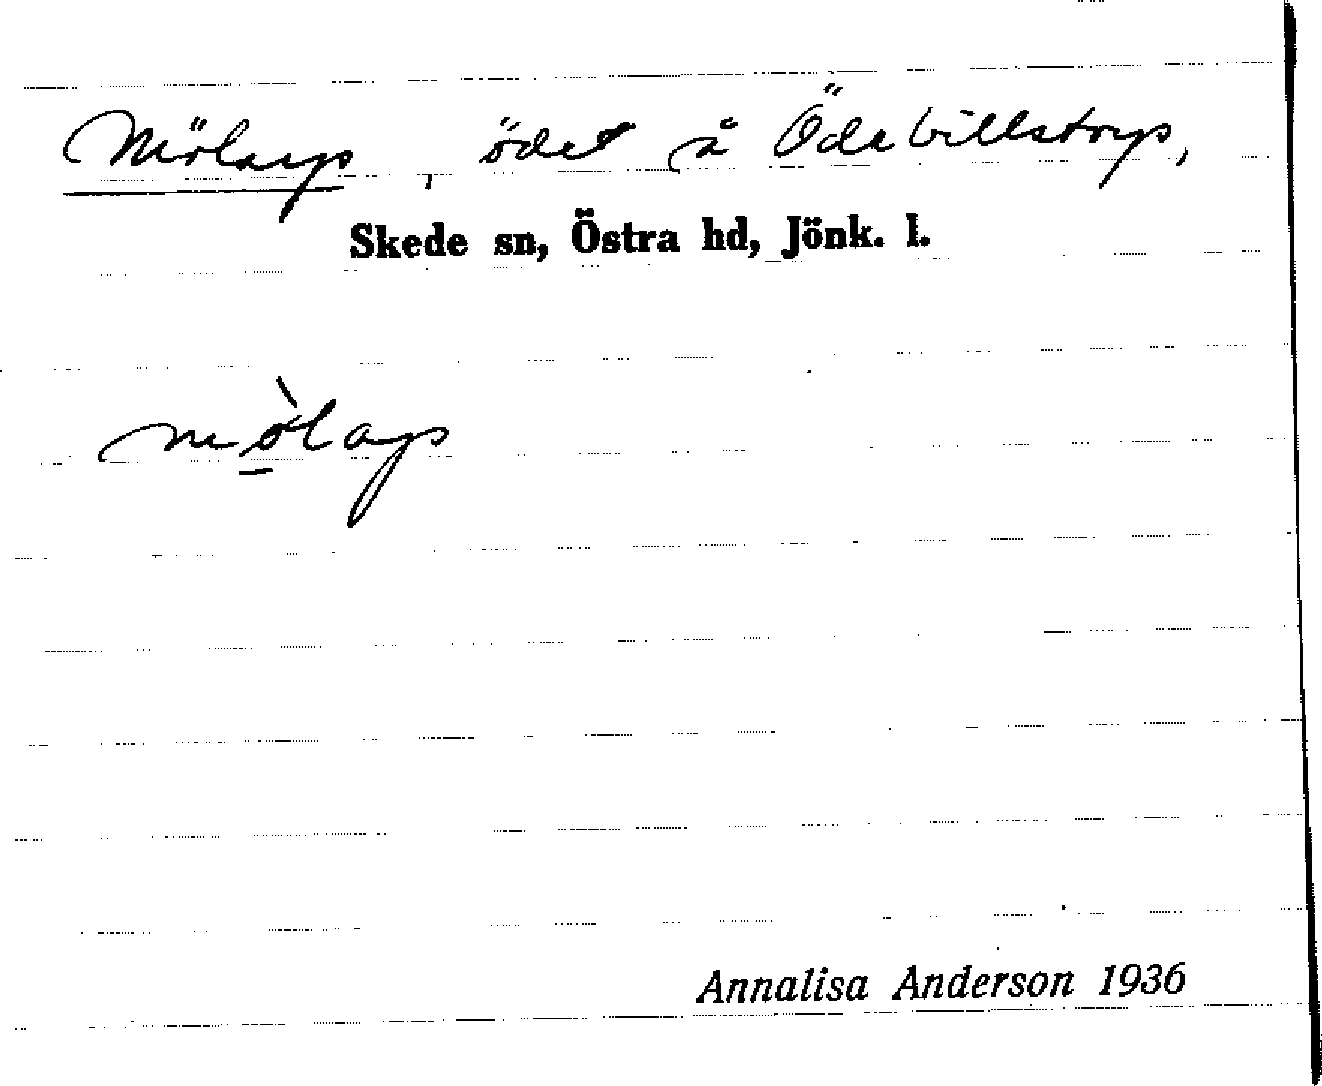 Mölarp, ödet å Ödebillstorp,
Skede sn, Östra hd, Jönk. l.
mö̀larp
Annalisa Anderson 1936